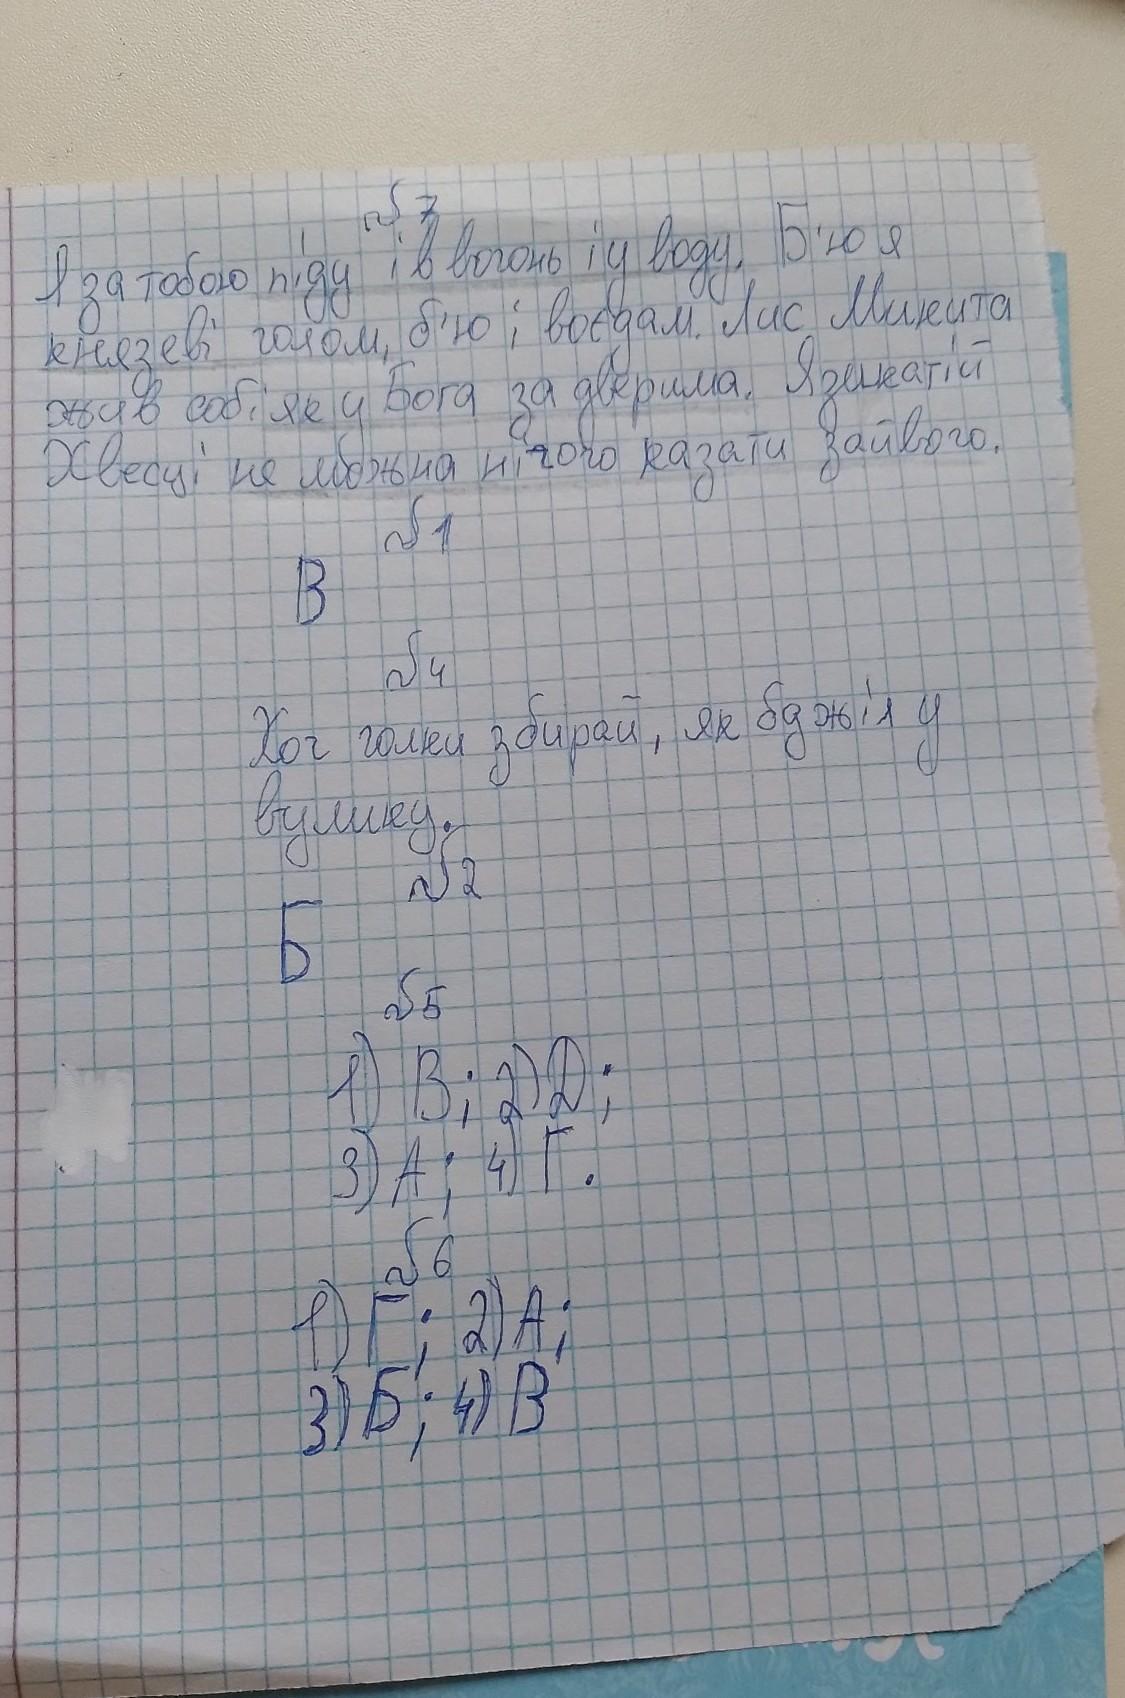 №7
Я за тобою піду і в вогонь і у воду. Б'ю я
князеві чолом, б'ю і воєдам. Лис Микита
жив собі як у Бога за дверима. Язикатій
Хвесці не можна нічого казати зайвого.
№1
В
№4
Хоч голки збирай, як бджіл у
вулику.
№2
Б
№5
1) В; 2) Д;
3) А; 4) Г.
№6
1) Г; 2) А;
3) Б; 4) В